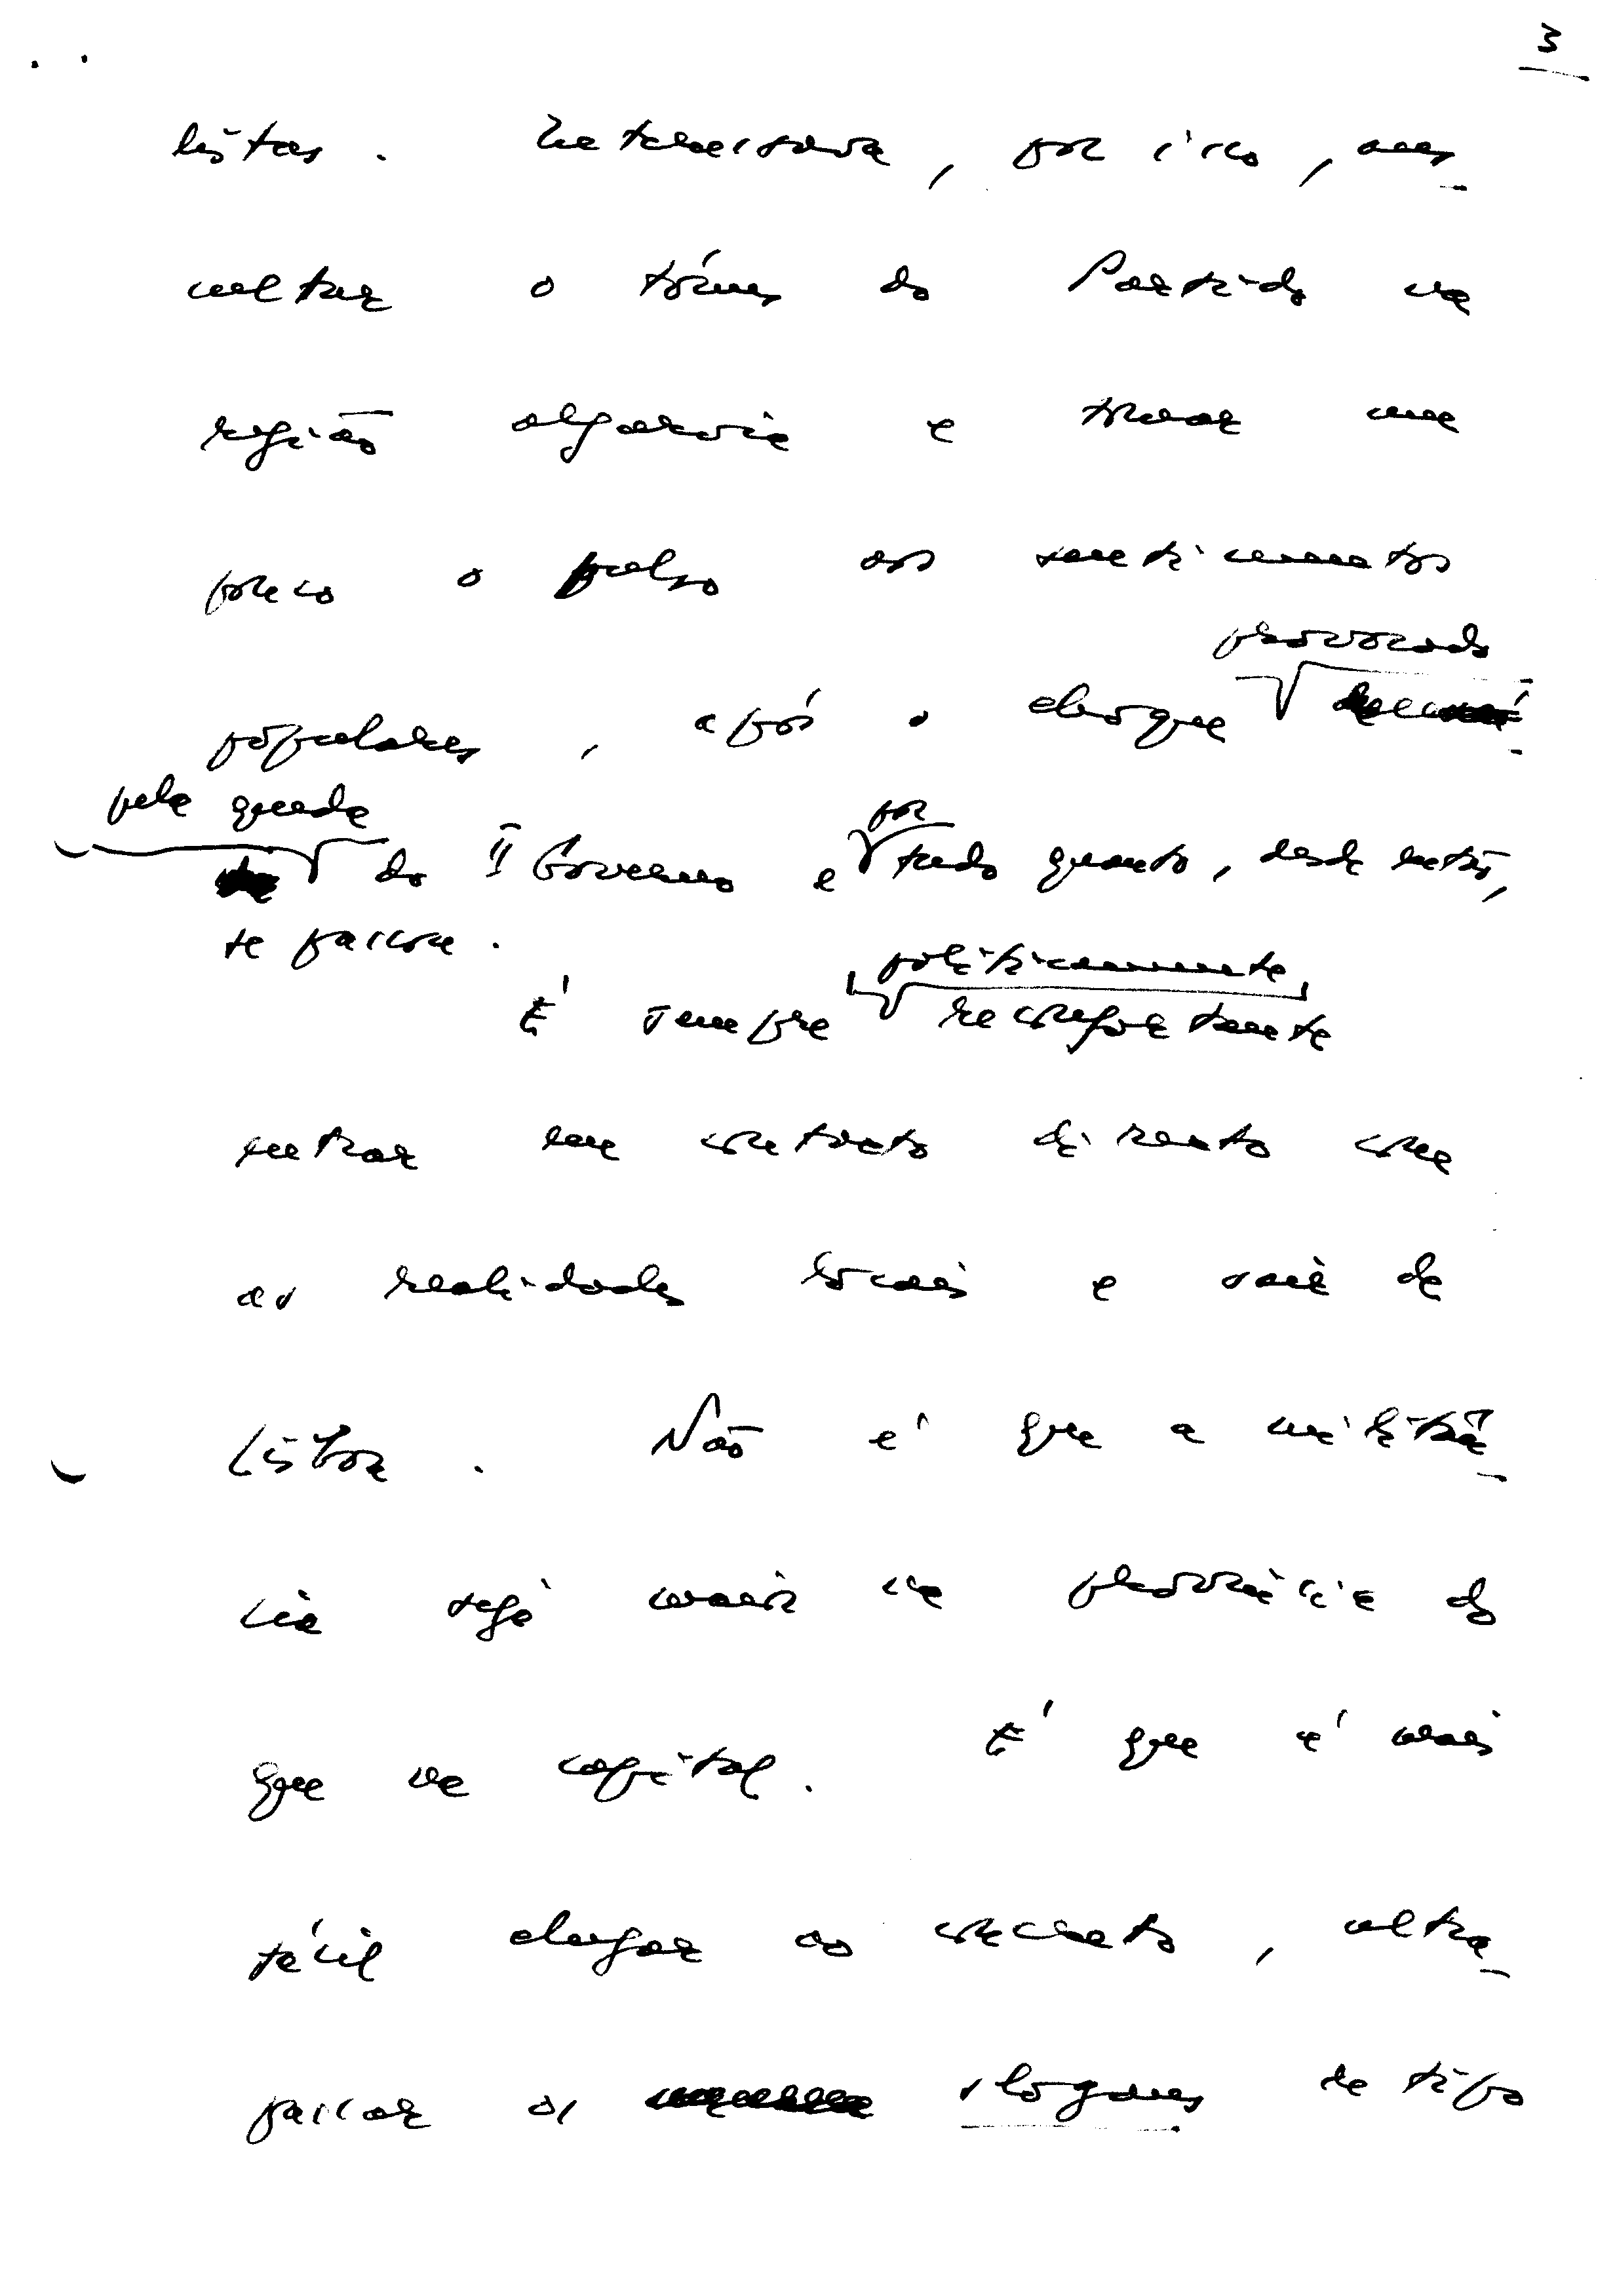 3
listas. Interessava, por isso, aus-
cultar o tónus do Partido na
região algarvia e tomar um
pouco o pulso aos sentimentos
populares, após o choque provocado
pela queda do II Governo e por tudo quanto, desde então,
se passou.
É sempre politicamente reconfortante
entrar em contacto directo com
as realidades locais e sair de
Lisboa. Não é que a militân-
cia seja maior na província do
que na capital. É que é mais
fácil chegar ao concreto, ultra-
passar os slogans de tipo